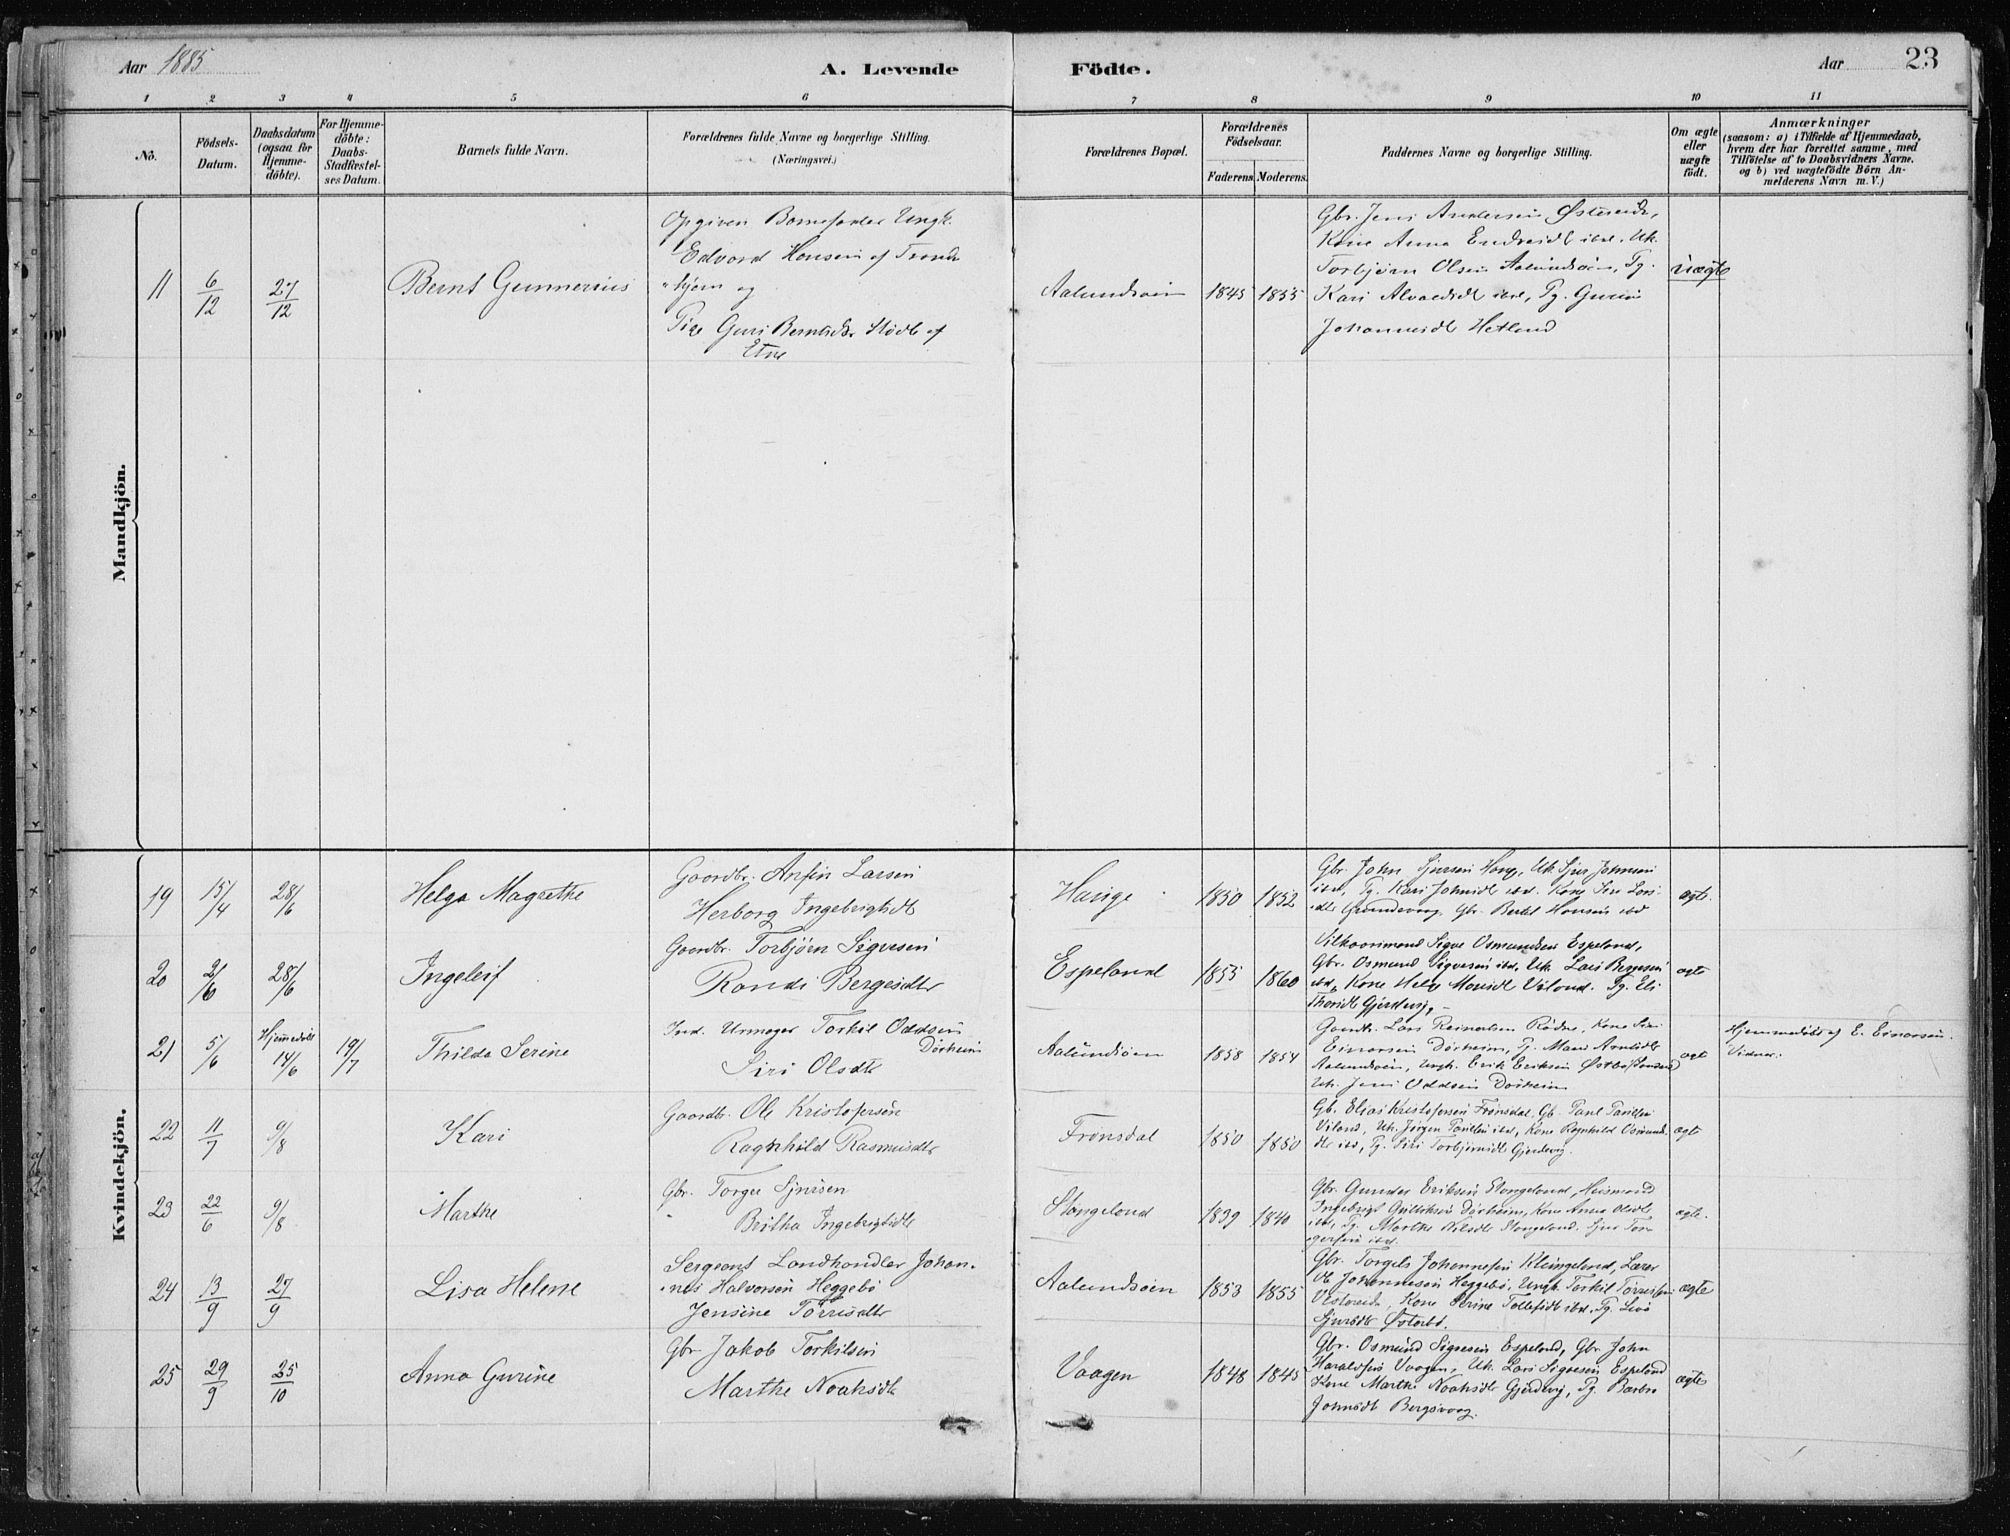 Aar 1885 A. Levende Födte. Aar 23
1 2 3 4 5 6 7 8 9 10 11
No.
Födsels-
Datum.
Daabsdatum
(ogsaa for
Hjemme-
döbte).
For Hjemme-
döbte:
Daabs-
Stadfæstel-
ses Datum.
Barnets fulde Navn.
Forældrenes fulde Navne og borgerlige Stilling.
(Næringsvei.)
Forældrenes Bopæl.
Forældrenes
Födselsaar.
Faderens. Moderens.
Faddernes Navne og borgerlige Stilling.
Om ægte
eller
uægte
födt.
Anmærkninger
(saasom: a) i Tilfælde af Hjemmedaab,
hvem der har forrettet samme, med
Tilföielse af to Daabsvidners Navne.
og b) ved uægtefödte Börn An-
melderens Navn m. V.)
Mandkjön.
11 6/12 27/12 Bernt Gunnerius
Opgiven Barnefader Ungk.
Edvard Hansen af Trond-
hjem og
Pige Guri Berntsdtr Stødle af
Etne
Aalundsøen 1845 1855
Gbr. Jens Andersen Østereide,
Kone Anna Endresdt ibd, Uk.
Torbjørn Olsen Aalundsøen, Pg.
Kari Alvaldsdt ibd, Pg. Gurine
Johannesdt Hetland
uægte
Kvindekjön.
19 15/4 28/6 Helga Magrethe
Gaardbr. Anfin Larsen
Herborg Ingebrigtsdt
Hauge 1850 1852
Gbr. John Sjursen Haug, Uk. Sjur Johnsen
ibd, Pg. Kari Johnsdt ibd. Kone Siri Lars-
dtr Grundevaag, Gbr. Bertel Hansen ibd
ægte.
20 2/6 28/6 Ingeleif
Gaardbr. Torbjørn Sigvesen
Randi Bergesdtr
Espeland 1855 1860
Vilkaarsmand Sigve Osmundsen Espeland,
Gbr. Osmund Sigvesen ibd, Uk. Lars Bergesen
ibd, Kone Helga Monsdt Viland. Pg. Eli
Thorsdt Gjerdevig,
ægte
21 5/6 Hjemmedøbt 14/6 19/7 Thilda Serine
Ind. Urmager Torkil Oddsen
Dørheim
Siri Olsdtr
Aalundsøen 1858 1854
Gaardbr. Lars Reinertsen Rødne, Kone Siri
Einarsen Dørheim, Pg. Mari Arnesdtr
Aalundsøen, Ungk. Erik Eriksen Østbø/Sandeid
Uk. Jens Oddsen Dørheim
ægte
Hjemmedøbt af E. Einarsen.
Vidner:
22 11/7 9/8 Kari
Gaardbr. Ole Kristofersen
Ragnhild Rasmusdtr
Frønsdal 1850 1850
Gb. Elias Kristofersen Frønsdal, Gb. Paul Paulsen
Viland, Uk. Jørgen Paulsen ibd, Kone Ragnhild Osmunds-
dtr ibd, Pg. Siri Torbjørnsdt Gjerdevig.
ægte
23 22/6 9/8 Marthe
Gbr. Torger Sjursen
" Britha Ingebrigtsdt
Stangeland 1839 1840
Gbr. Gunder Eriksen Stangeland, Huusmand
Ingebrigt Dørheim, Kone Anna Olsdt
ibd, Pg. Marthe Nilsdt Stangeland. Sjur Tor-
gersen ibd.
ægte.
24 13/9 27/9 Lisa Helene
Sergeant Landhandler Johan-
nes Halvorsen Heggebø
Jensine Tørrisdtr
Aalundsøen 1853 1855
Gbr. Torgels Johannesen Kleingeland, Lærer
Ole Johannesen Heggebø, Ungk. Torkil Tørrissen
Vestereide, Kone Serine Tollefsdt ibd, Pg. Lisa
Sjursdtr Østerbø.
ægte
25 29/9 25/10 Anna Gurine
Gbr Jakob Torkilsen
Marthe Noahsdtr
Vaagen 1848 1845
Gbr. Osmund Sigvesen Espeland, Gbr John
Haraldsen Vaagen, Uk. Lars Sigvesen Espeland
Kone Marthe Noahsdtr Gjerdevig, Pg. Barbro
Johnsdt Bergsvaag.
ægte